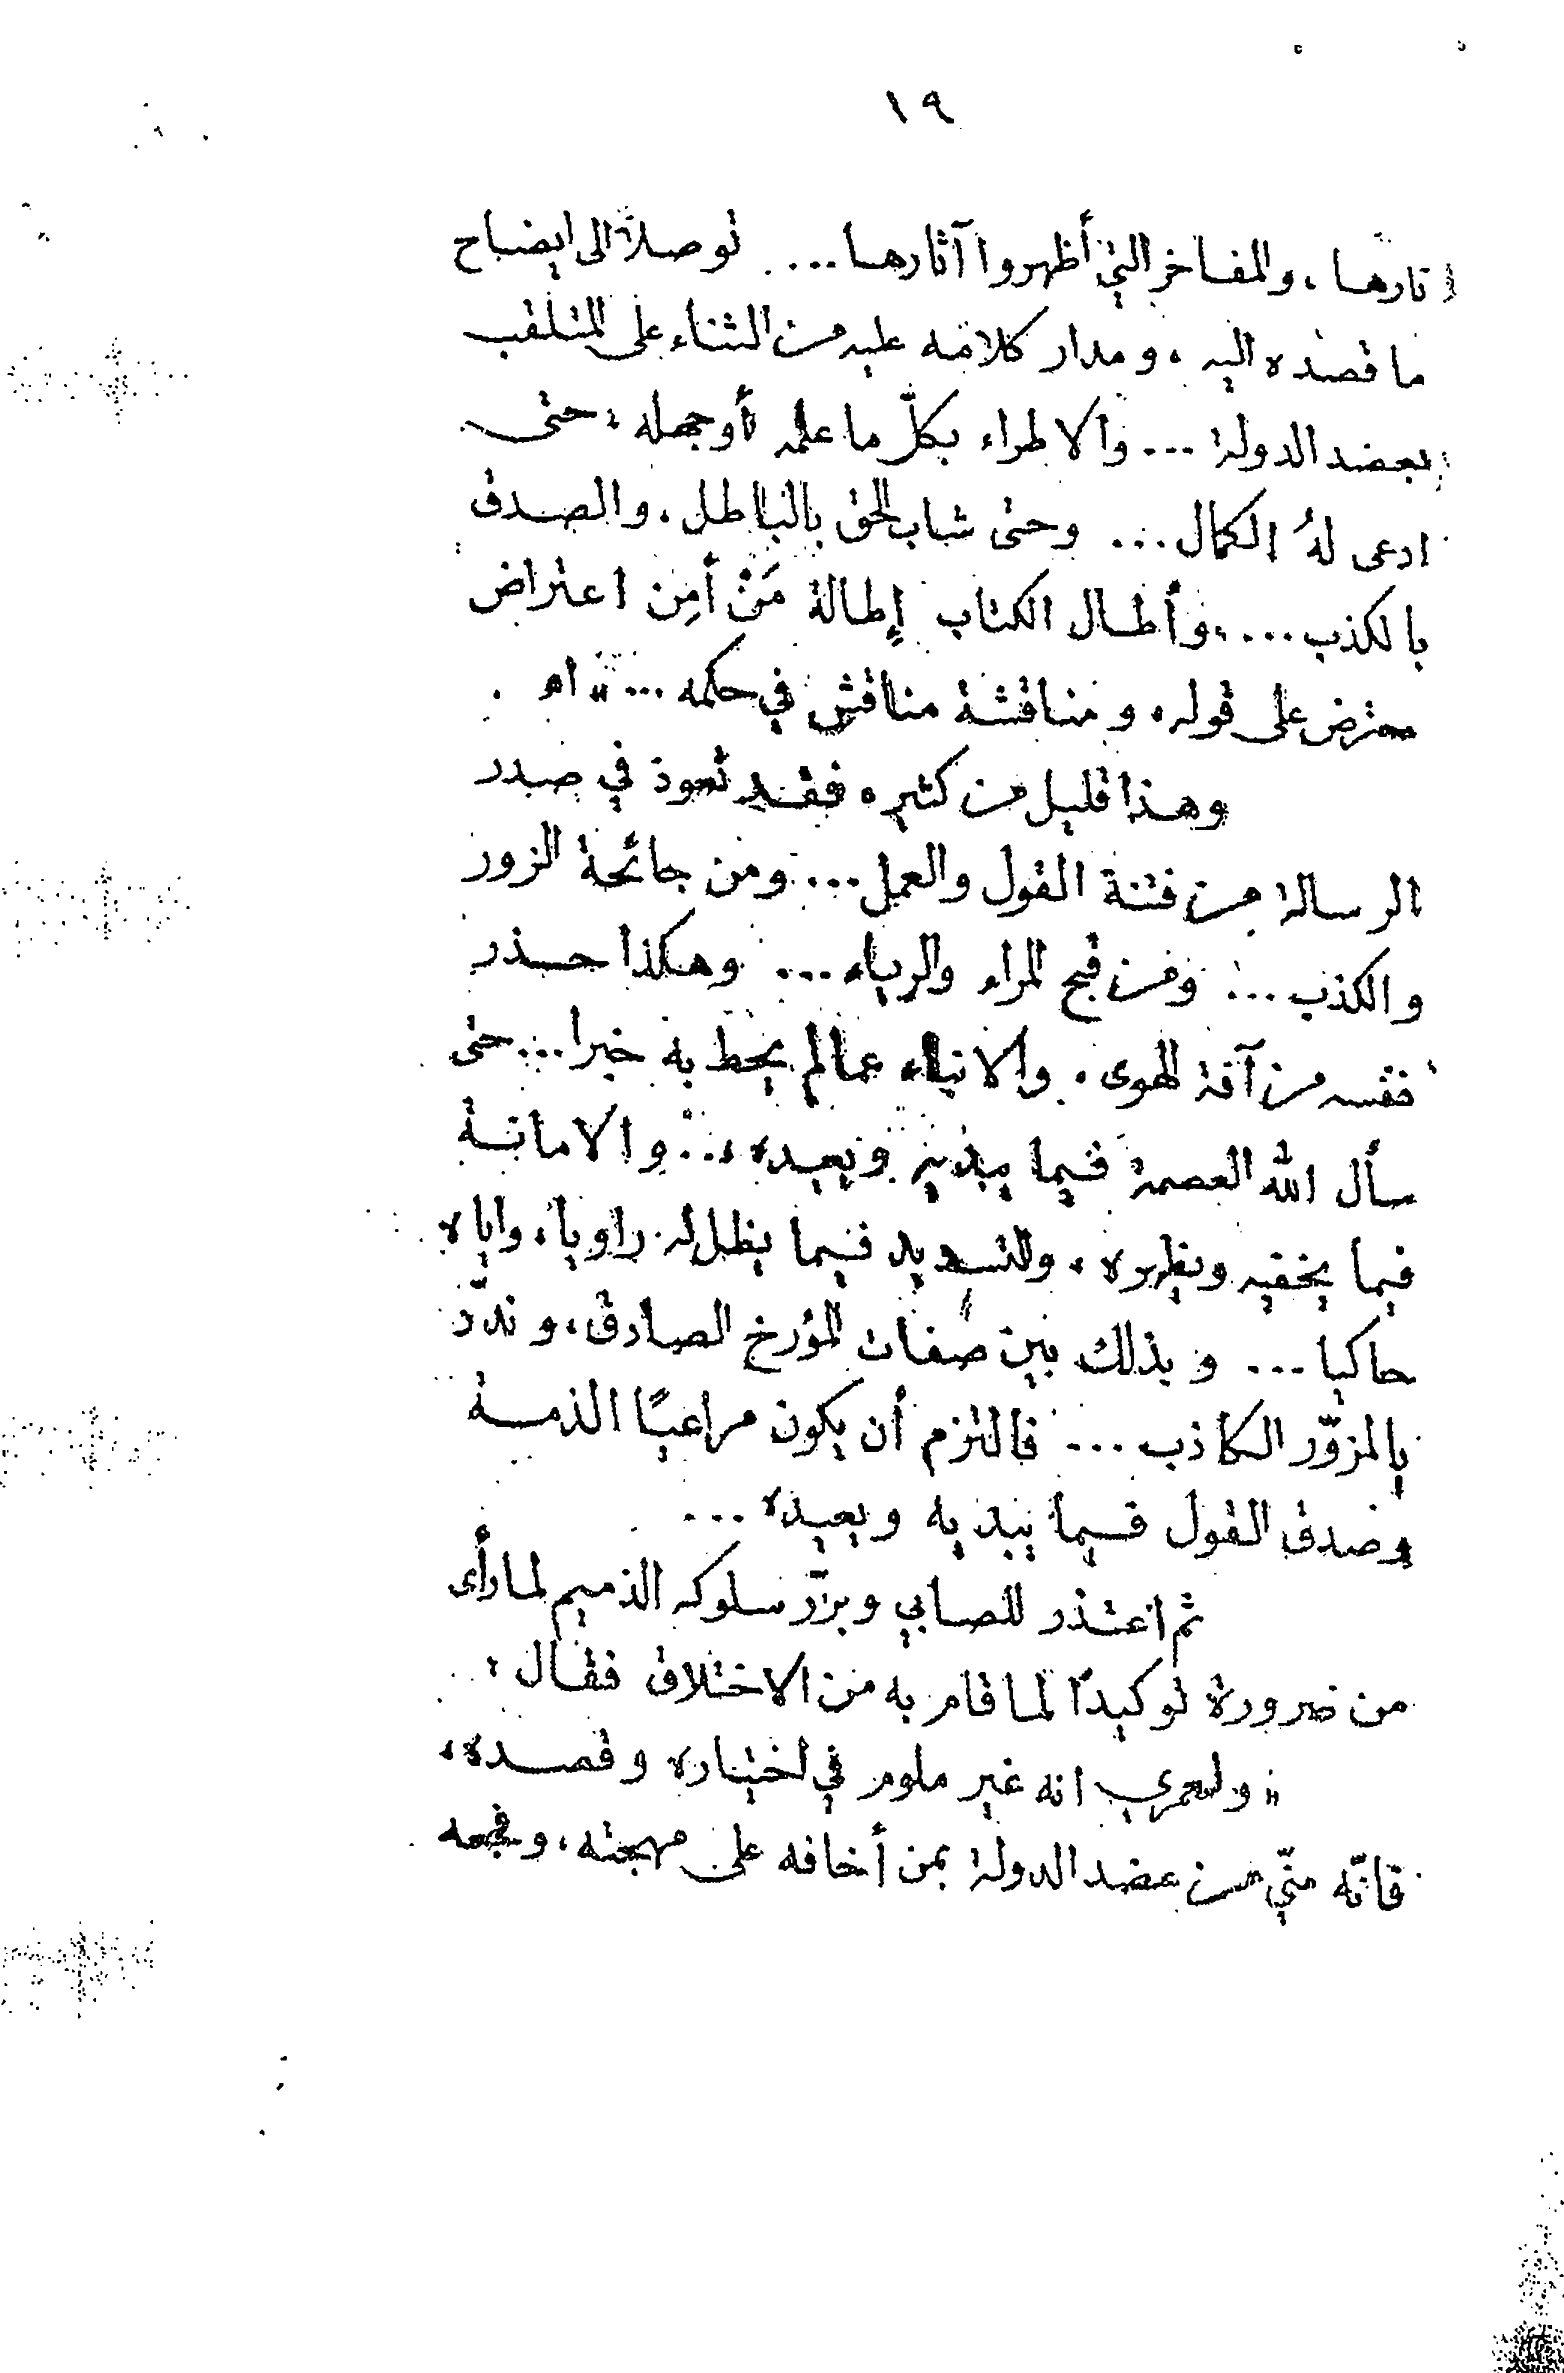 ١٩
نارها، والمفاخر التي أظهروا آثارها... توصلاً الى ايضاح
ما قصده اليه، ومدار كلامه عليه من الثناء على المتلقب
بعضد الدولة ... والاطراء بكلّ ما علمه أو جهله، حتى
ادعى لهُ الكمال ... وحتى شاب الحق بالباطل، والصدق
بالكذب ...، وأطال الكتاب إطالة مَنْ أمِن اعتراض
معترض على قوله، ومناقشة مناقش في حكمه ... » اهـ .
وهذا قليل من كثيره فقد تعوذ في صدر
الرسالة من فتنة القول والعمل ... ومن جائحة الزور
والكذب ... ومن قبح المراء والرياء ... وهكذا حذر
نفسه من آفة الهوى، والانباء عما لم يحط به خبرا ... حتى
سأل الله العصمة فيما يبديه ويعيده، ... والامانة
فيما يخفيه ويظهره، والتسديد فيما يظل له راويا، واياه
حاكيا ... وبذلك بين صفات المؤرخ الصادق، وندّد
بالمزوّر الكاذب ... فالتزم أن يكون مراعيًا الذمة
وصدق القول فيما يبديه ويعيده ...
ثم اعتذر للصابي وبرّر سلوكه الذميم لما رأى
من ضرورة توكيدًا لما قام به من الاختلاق فقال :
« ولعمري انه غير ملوم في اختياره وقصده،
فانّه منّي من عضد الدولة بمن أخافه على مهجته، وفجعه